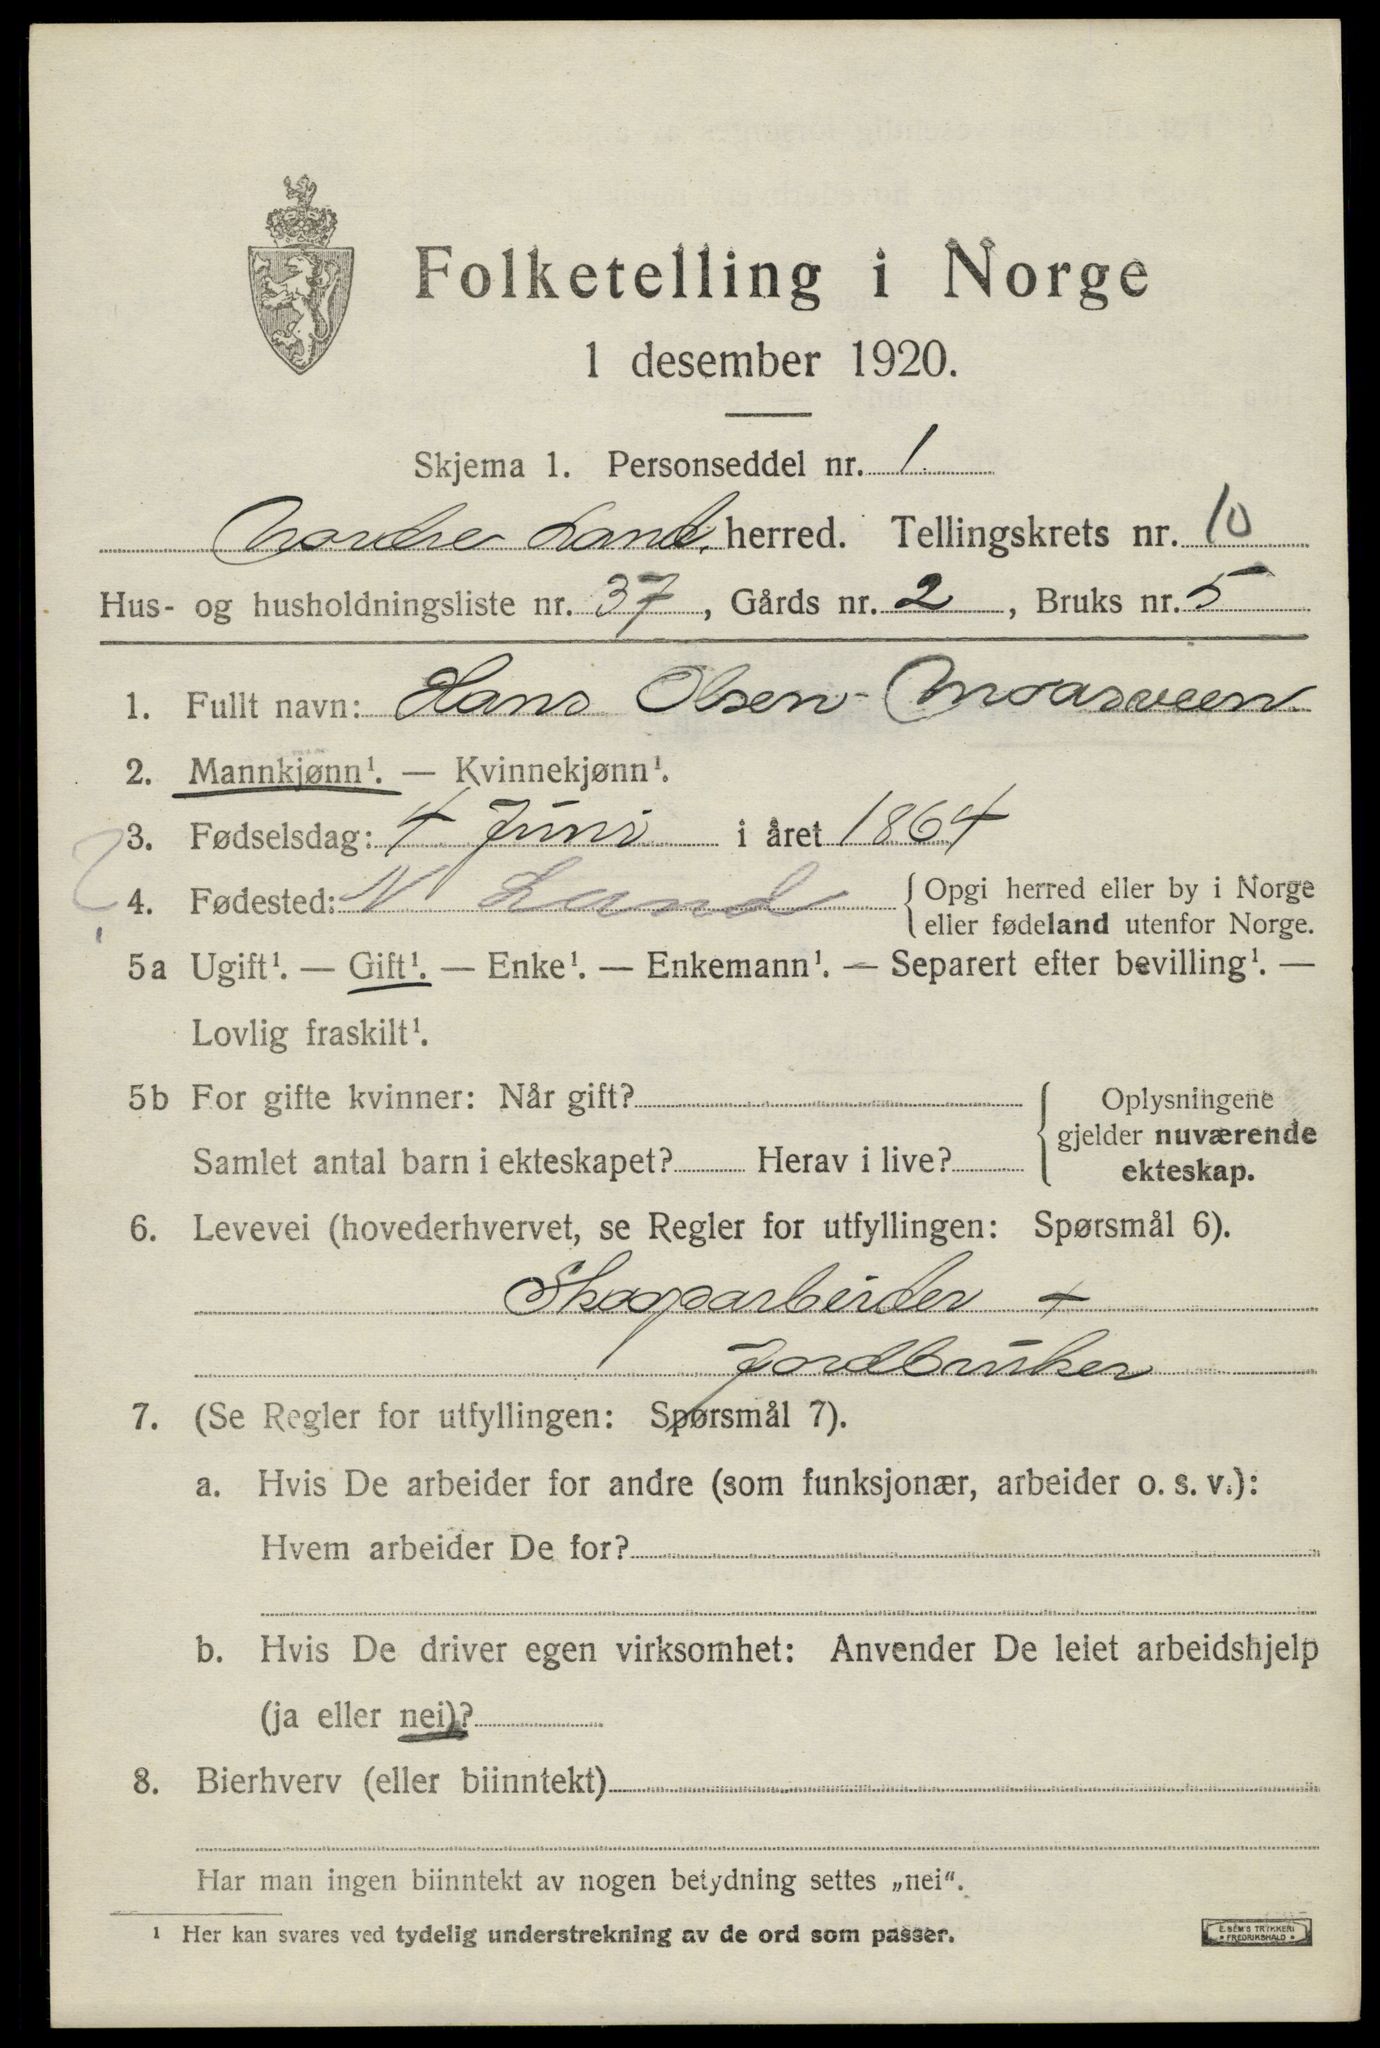 Folketelling i Norge
1 desember 1920.
Skjema 1. Personseddel nr. 1
Nordre Land. herred. Tellingskrets nr. 10
Hus- og husholdningsliste nr. 37, Gårds nr. 2, Bruks nr. 5
1. Fullt navn: Hans Olsen Moasveen
2. Mannkjønn¹. — Kvinnekjønn¹.
3. Fødselsdag: 4 Juni i året 1864
?
4. Fødested: N Land { Opgi herred eller by i Norge
eller fødeland utenfor Norge.
5a Ugift¹. — Gift¹. — Enke¹. — Enkemann¹. — Separert efter bevilling¹. —
Lovlig fraskilt¹.
5b For gifte kvinner: Når gift?
Samlet antal barn i ekteskapet? Herav i live?
Oplysningene
gjelder nuværende
ekteskap.
6. Levevei (hovederhvervet, se Regler for utfyllingen: Spørsmål 6).
Skogsarbeider +
Jordbruker
7. (Se Regler for utfyllingen: Spørsmål 7).
a. Hvis De arbeider for andre (som funksjonær, arbeider o. s. v.):
Hvem arbeider De for?
b. Hvis De driver egen virksomhet: Anvender De leiet arbeidshjelp
(ja eller nei)?
8. Bierhverv (eller biinntekt)
Har man ingen biinntekt av nogen betydning settes „nei“.
¹ Her kan svares ved tydelig understrekning av de ord som passer.
E. SEM'S TRYKKERI
FREDRIKSHALD